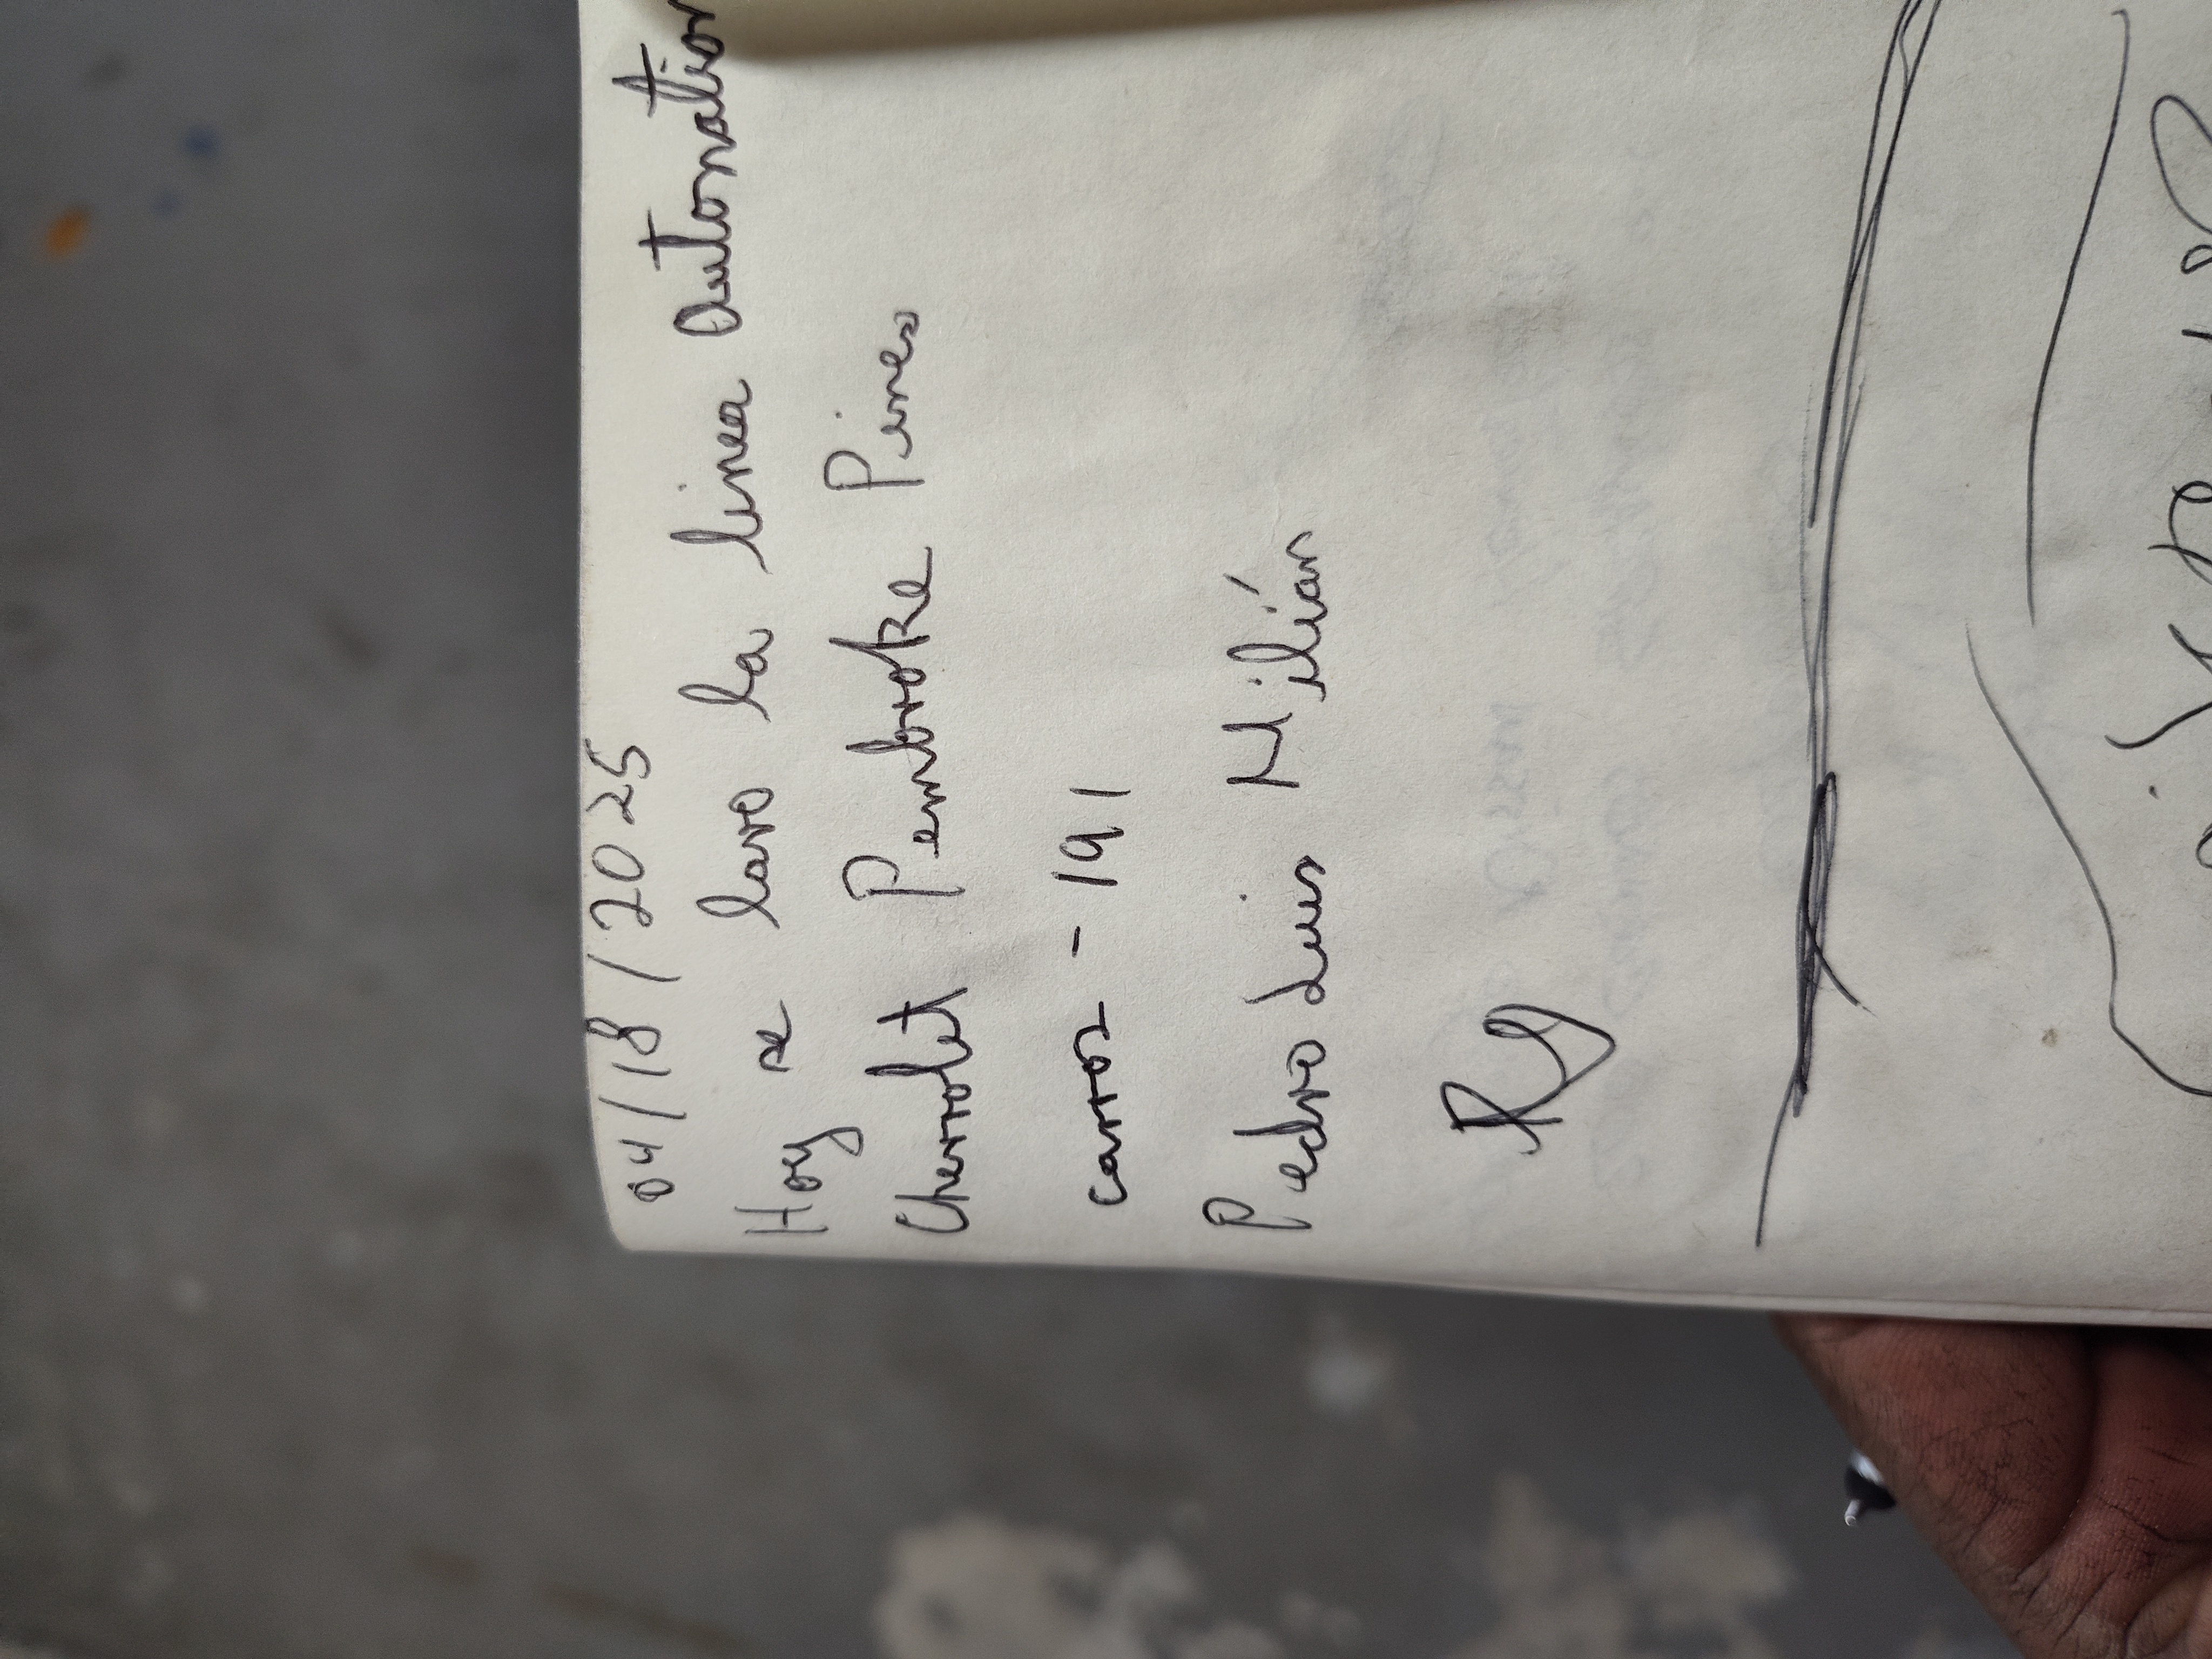 04/18/2025
Hoy se lavo la linea Autonation
Cherrolet Pembroke Pines
carros - 191
Pedro Luis Milián